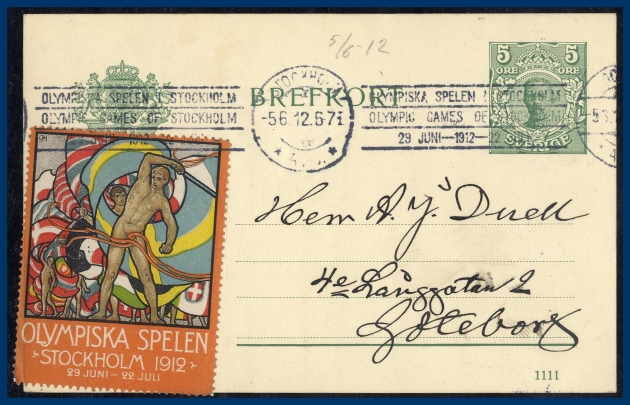 5/6-12
5 5
ÖRE ÖRE
SVERIGE
BREFKORT
STOCKHOLM
-5.6.12.6-7 F
OLYMPISKA SPELEN I STOCKHOLM
OLYMPIC GAMES OF STOCKHOLM
OLYMPISKA SPELEN I STOCKHOLM
OLYMPIC GAMES OF STOCKHOLM
29 JUNI-1912-22
-5.6
1912
OLYMPISKA SPELEN
STOCKHOLM 1912
29 JUNI - 22 JULI
Herr A. Y. Duell
4e Långgatan 2
Göteborg
1111